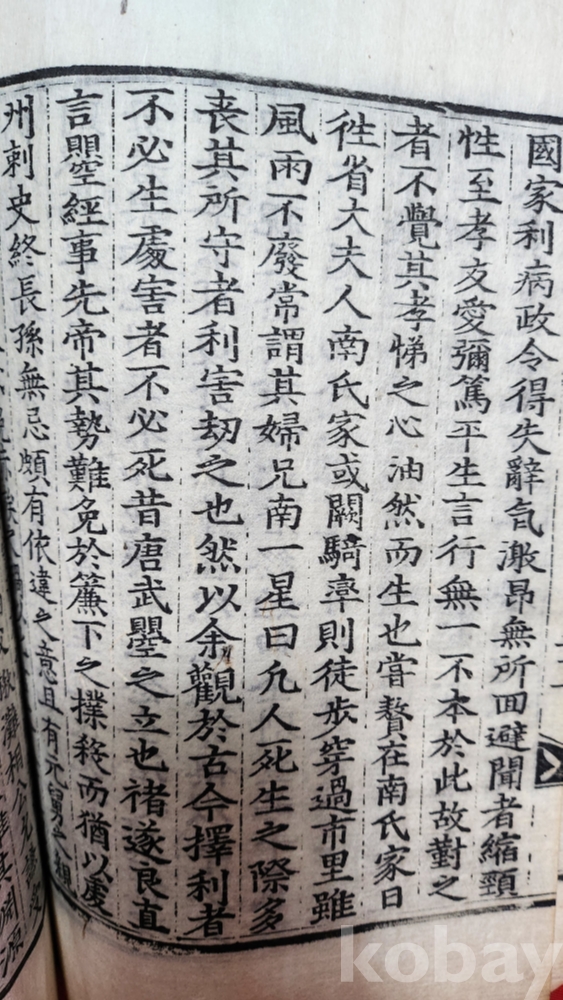 國家利病政令得失辭氣激昂無所回避聞者縮頸
性至孝友愛彌篤平生言行無一不本於此故對之
者不覺其孝悌之心油然而生也嘗贅在南氏家日
徃省大夫人南氏家或闕騎率則徒步穿過市里雖
風雨不廢常謂其婦兄南一星曰凡人死生之際多
喪其所守者利害刼之也然以余觀於古今擇利者
不必生處害者不必死昔唐武曌之立也褚遂良直
言曌經事先帝其勢難免於簾下之撲殺而猶以處
州刺史終長孫無忌頗有依違之意且有元舅之親
kobay